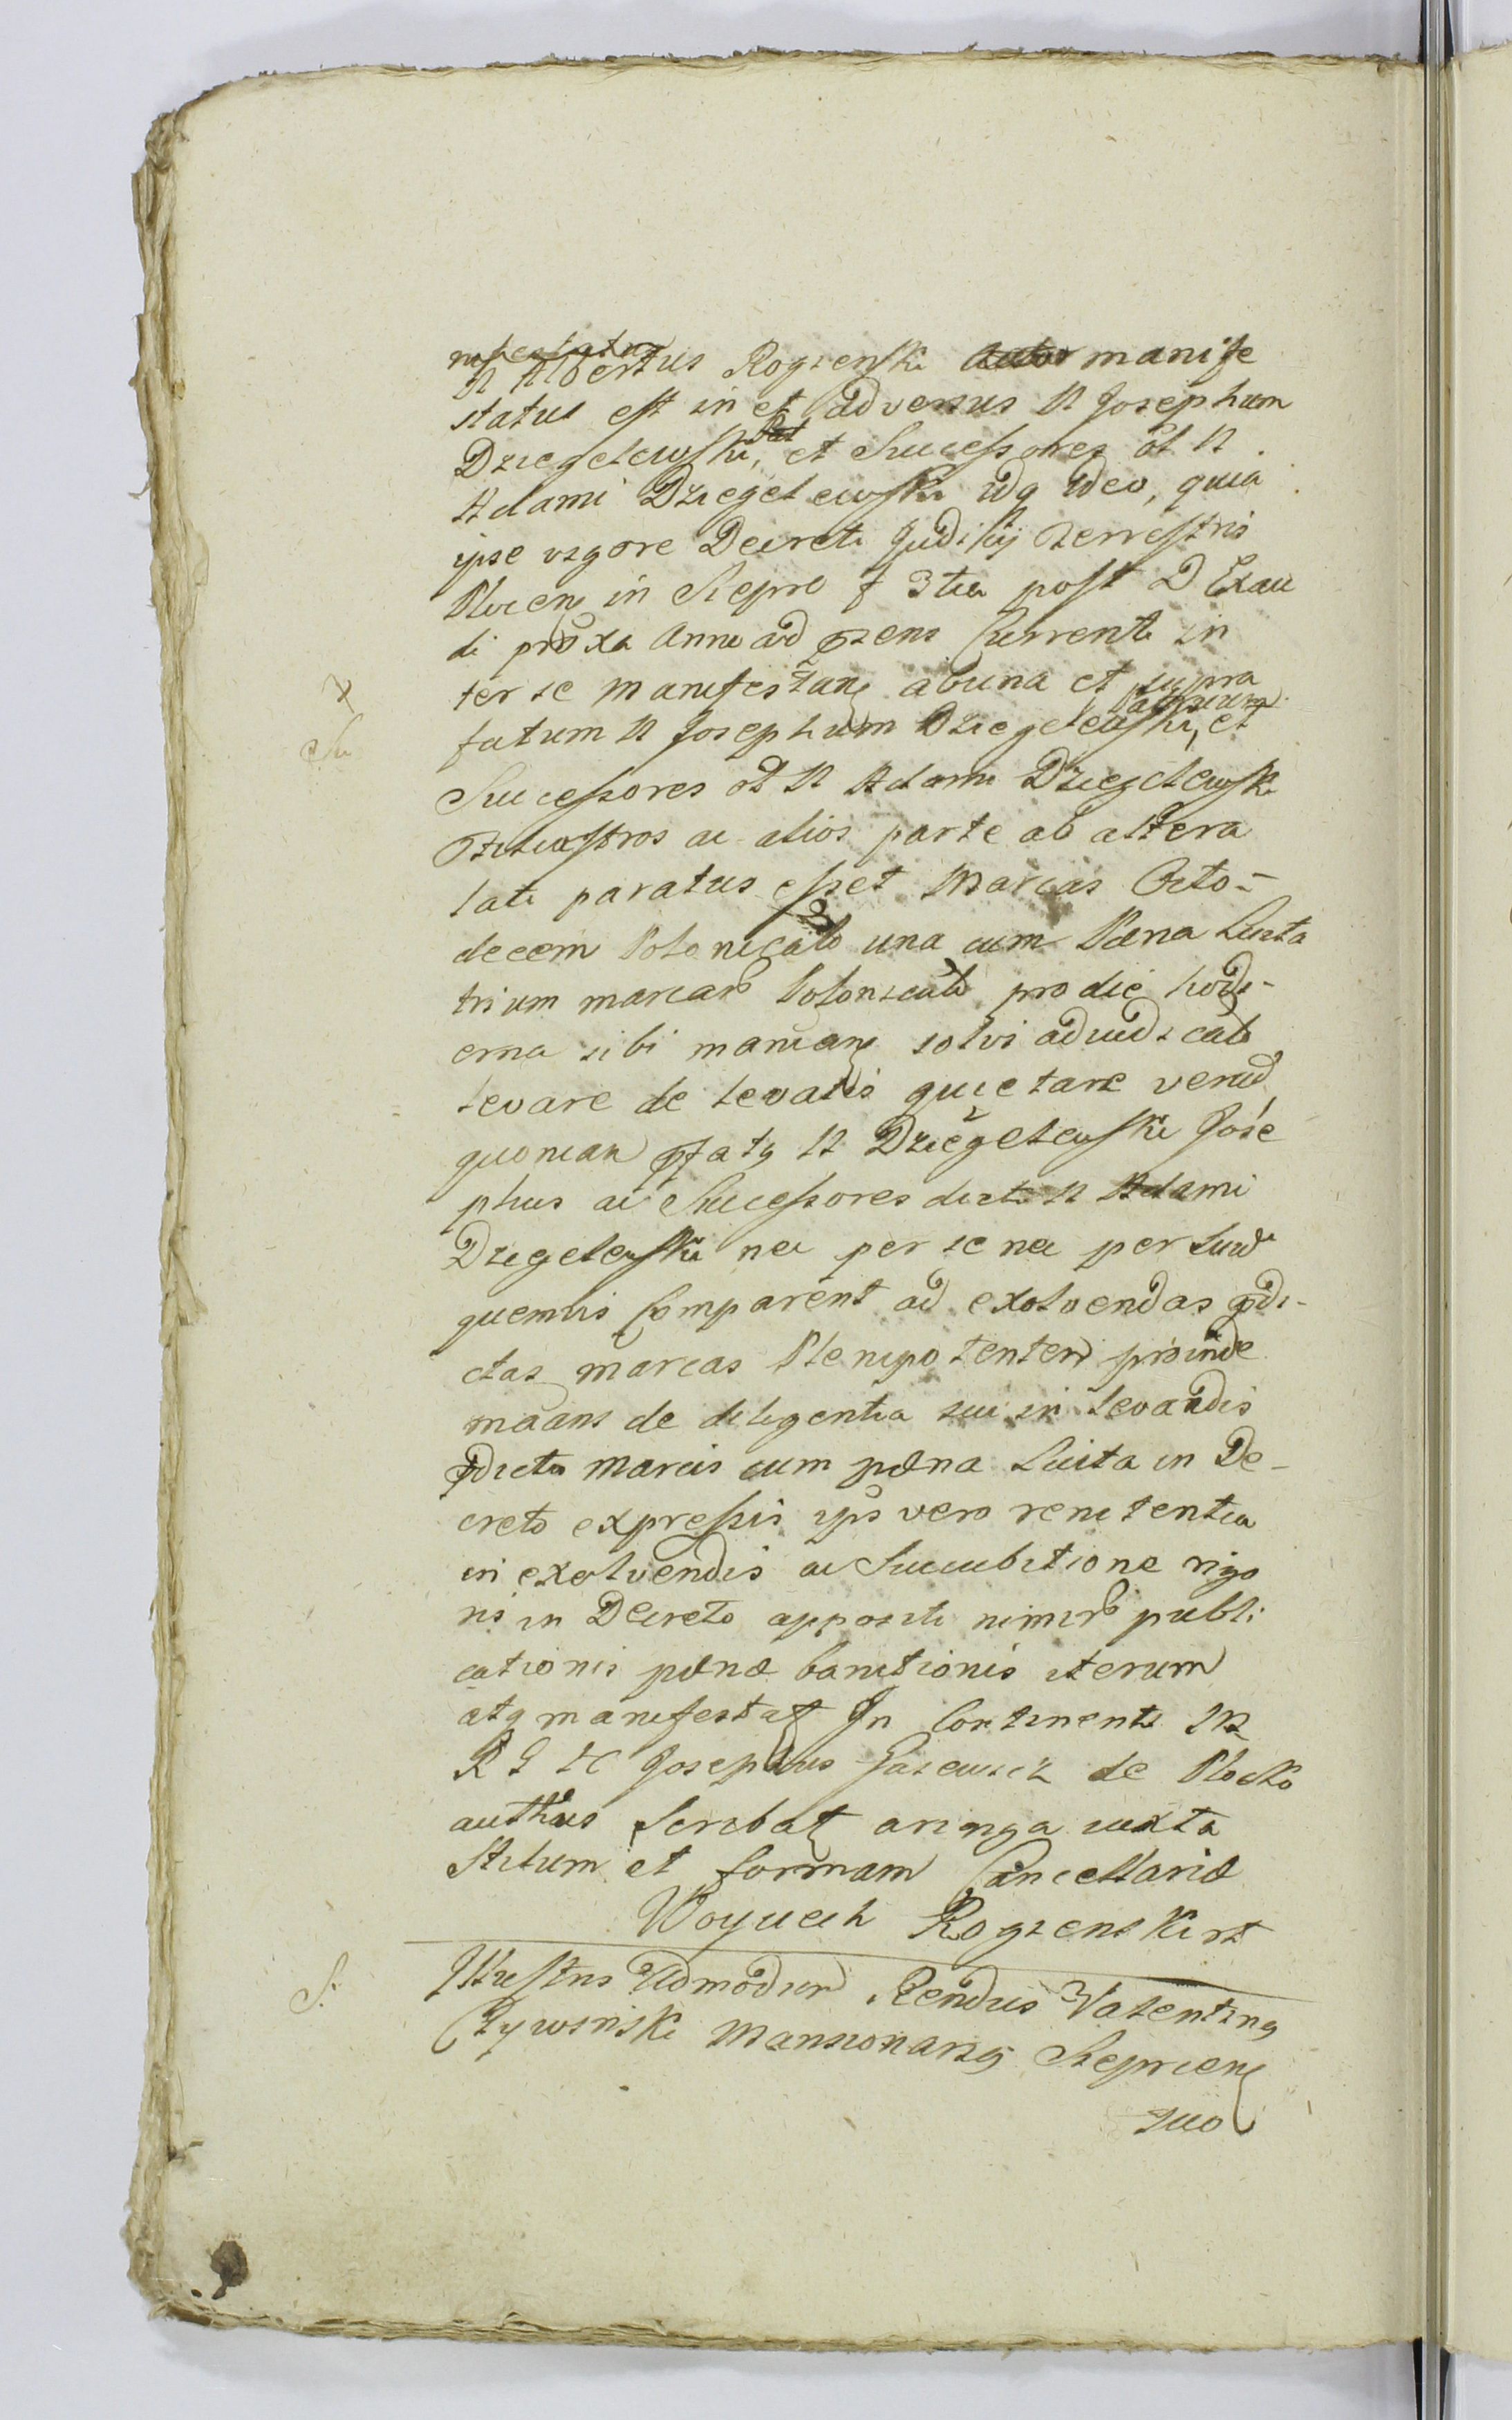 N Albertus Rogienski manife
status est in et adversus N Josephum
Dziegelewski, et Successores ol N
Adami Dziegelewski idq ideo, quia
ipse vigore Decreti Judicij Terrestris
Plocen in Sieprc f 3tia post D Exau
di proxa Anni ad pzens Currenti in
ter se manifestan ab una et supra
fatum N Josephum Dziegelewski, et
Successores ol N Adami Dziegelewski
ac alios parte ab altera
lati paratus esset Marcas Octo-
decem Polonicalo una cum Pæna Luita
trium marcar Polonicali pro die hodi-
erna sibi manean solvi adiudicalo
levare de levatis quietare verum
quoniam pfatg N Dziegelewski Jose
phus ac Successores dicti N Adami
Dziegelewski nec per se nec per Suu
quemvis Comparent ad exolvendas pdi-
ctas marcas Plenipotentem proinde
maans de diligentia sui in levandis
pdictis marcis cum pæna Luita in De-
creto expressis ips vero renitentia
in exolvendis ac Succubitione rigo
ris in Decreto appositi nimir publi
cationis pænæ banitionis iterum
atq manifestat In Continenti M
R S C Josephus de Plocko
auth scribat aringa iuxta
Stilum et formam Cancellariæ
Woyciech Rogienski
S. Illustris Admodum Rendus Valenting
Czywinski Mansionarig Sieprcen
suo